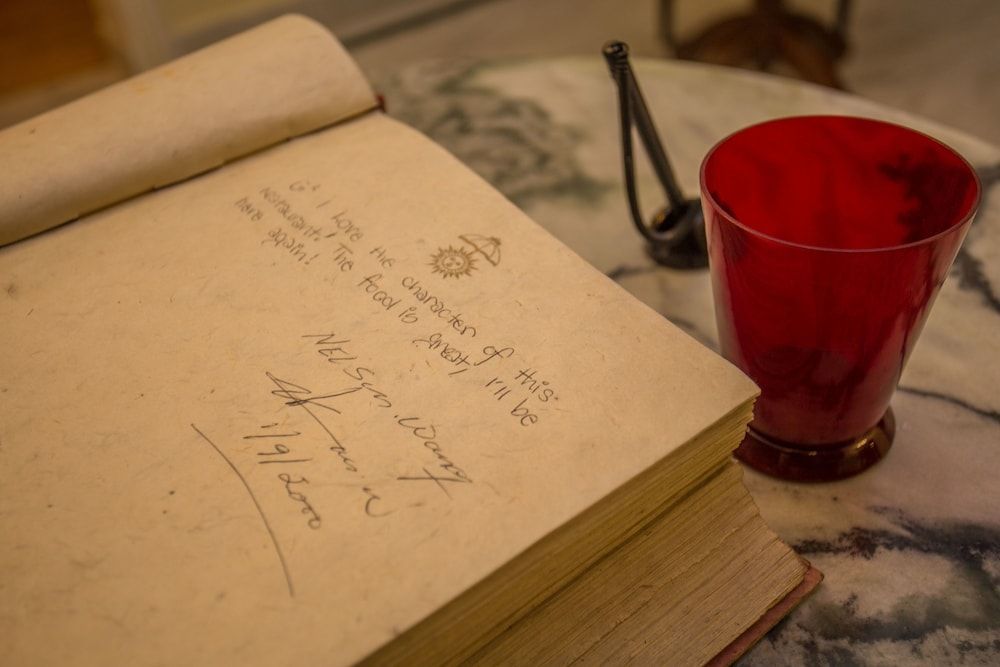 I love the character of this
restaurant, The food is great, I'll be
here again!
NELSON. WANG
1/9/2000